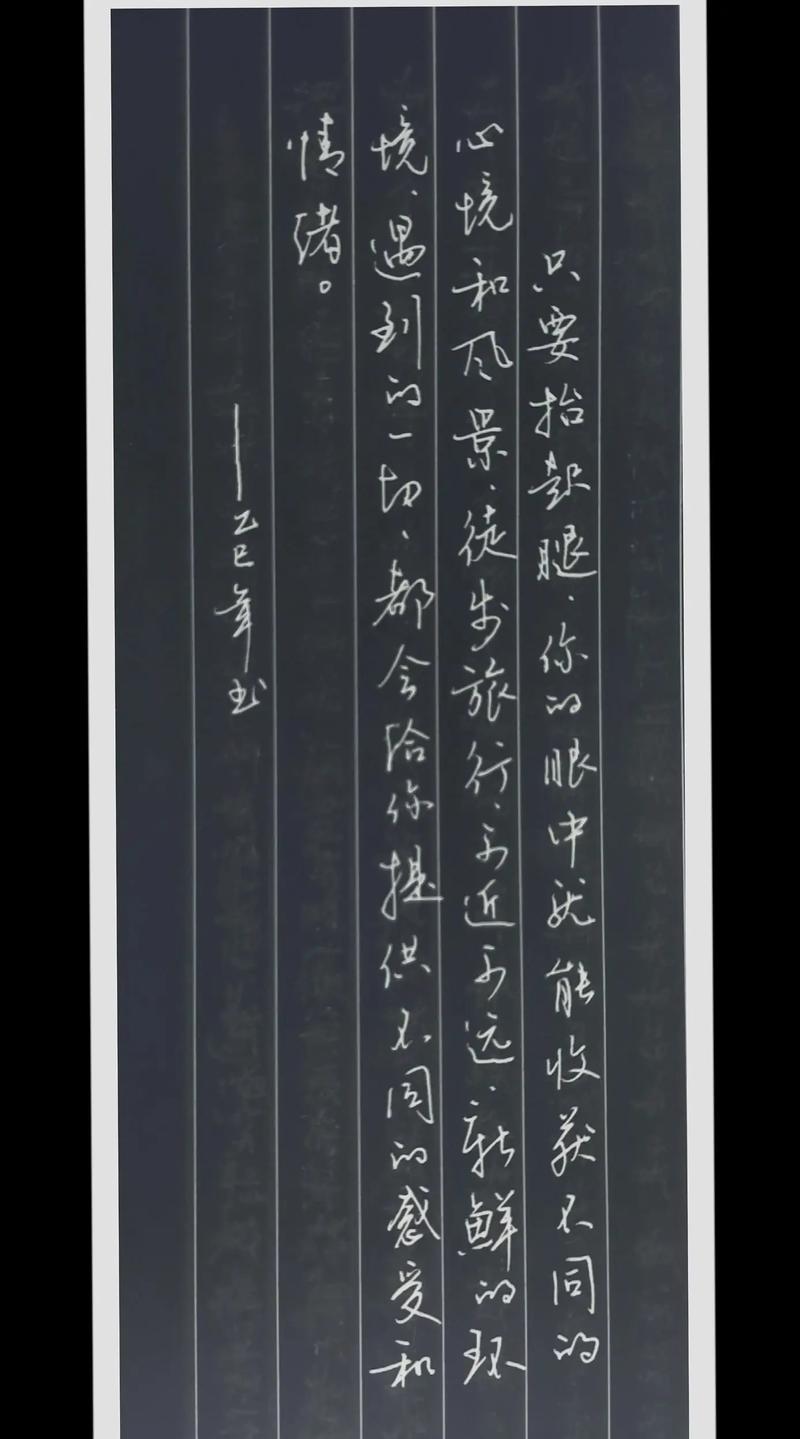 只要抬起腿、你的眼中就能收获不同的
心境和风景、徒步旅行、可近可远、新鲜的环
境、遇到的一切、都会给你提供不同的感受和
情绪。
——乙巳年书